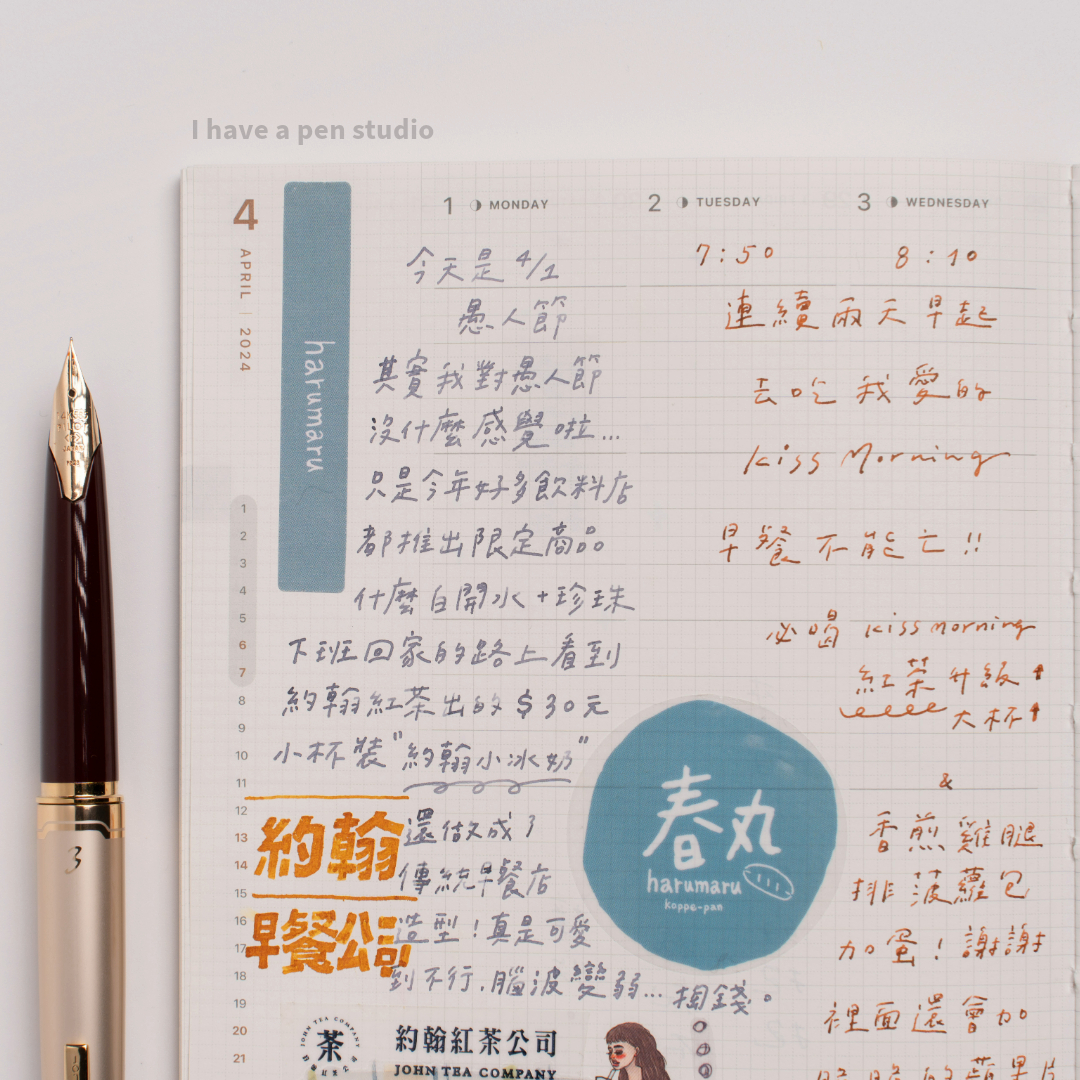 I have a pen studio
4
APRIL | 2024
harumaru
1 MONDAY
今天是 4/1
愚人節
其實我對愚人節
沒什麼感覺啦...
只是今年好多飲料店
都推出限定商品
什麼白開水+珍珠
下班回家的路上看到
約翰紅茶出的 $30元
小杯裝"約翰小冰奶"
還做成了
傳統早餐店
造型!真是可愛
到不行,腦波變弱... 掏錢。
約翰
早餐公司
JOHN TEA COMPANY
茶
約翰紅茶公司
JOHN TEA COMPANY
春丸
harumaru
koppe-pan
2 TUESDAY
3 WEDNESDAY
7:50
8:10
連續兩天早起
去吃我愛的
kiss Morning
早餐不能亡!!
必喝 kiss morning
紅茶升級↑
大杯↑
&
香煎雞腿
排菠蘿包
加蛋!謝謝
裡面還會加
脆脆的蘋果片
1
2
3
4
5
6
7
8
9
10
11
12
13
14
15
16
17
18
19
20
21
3